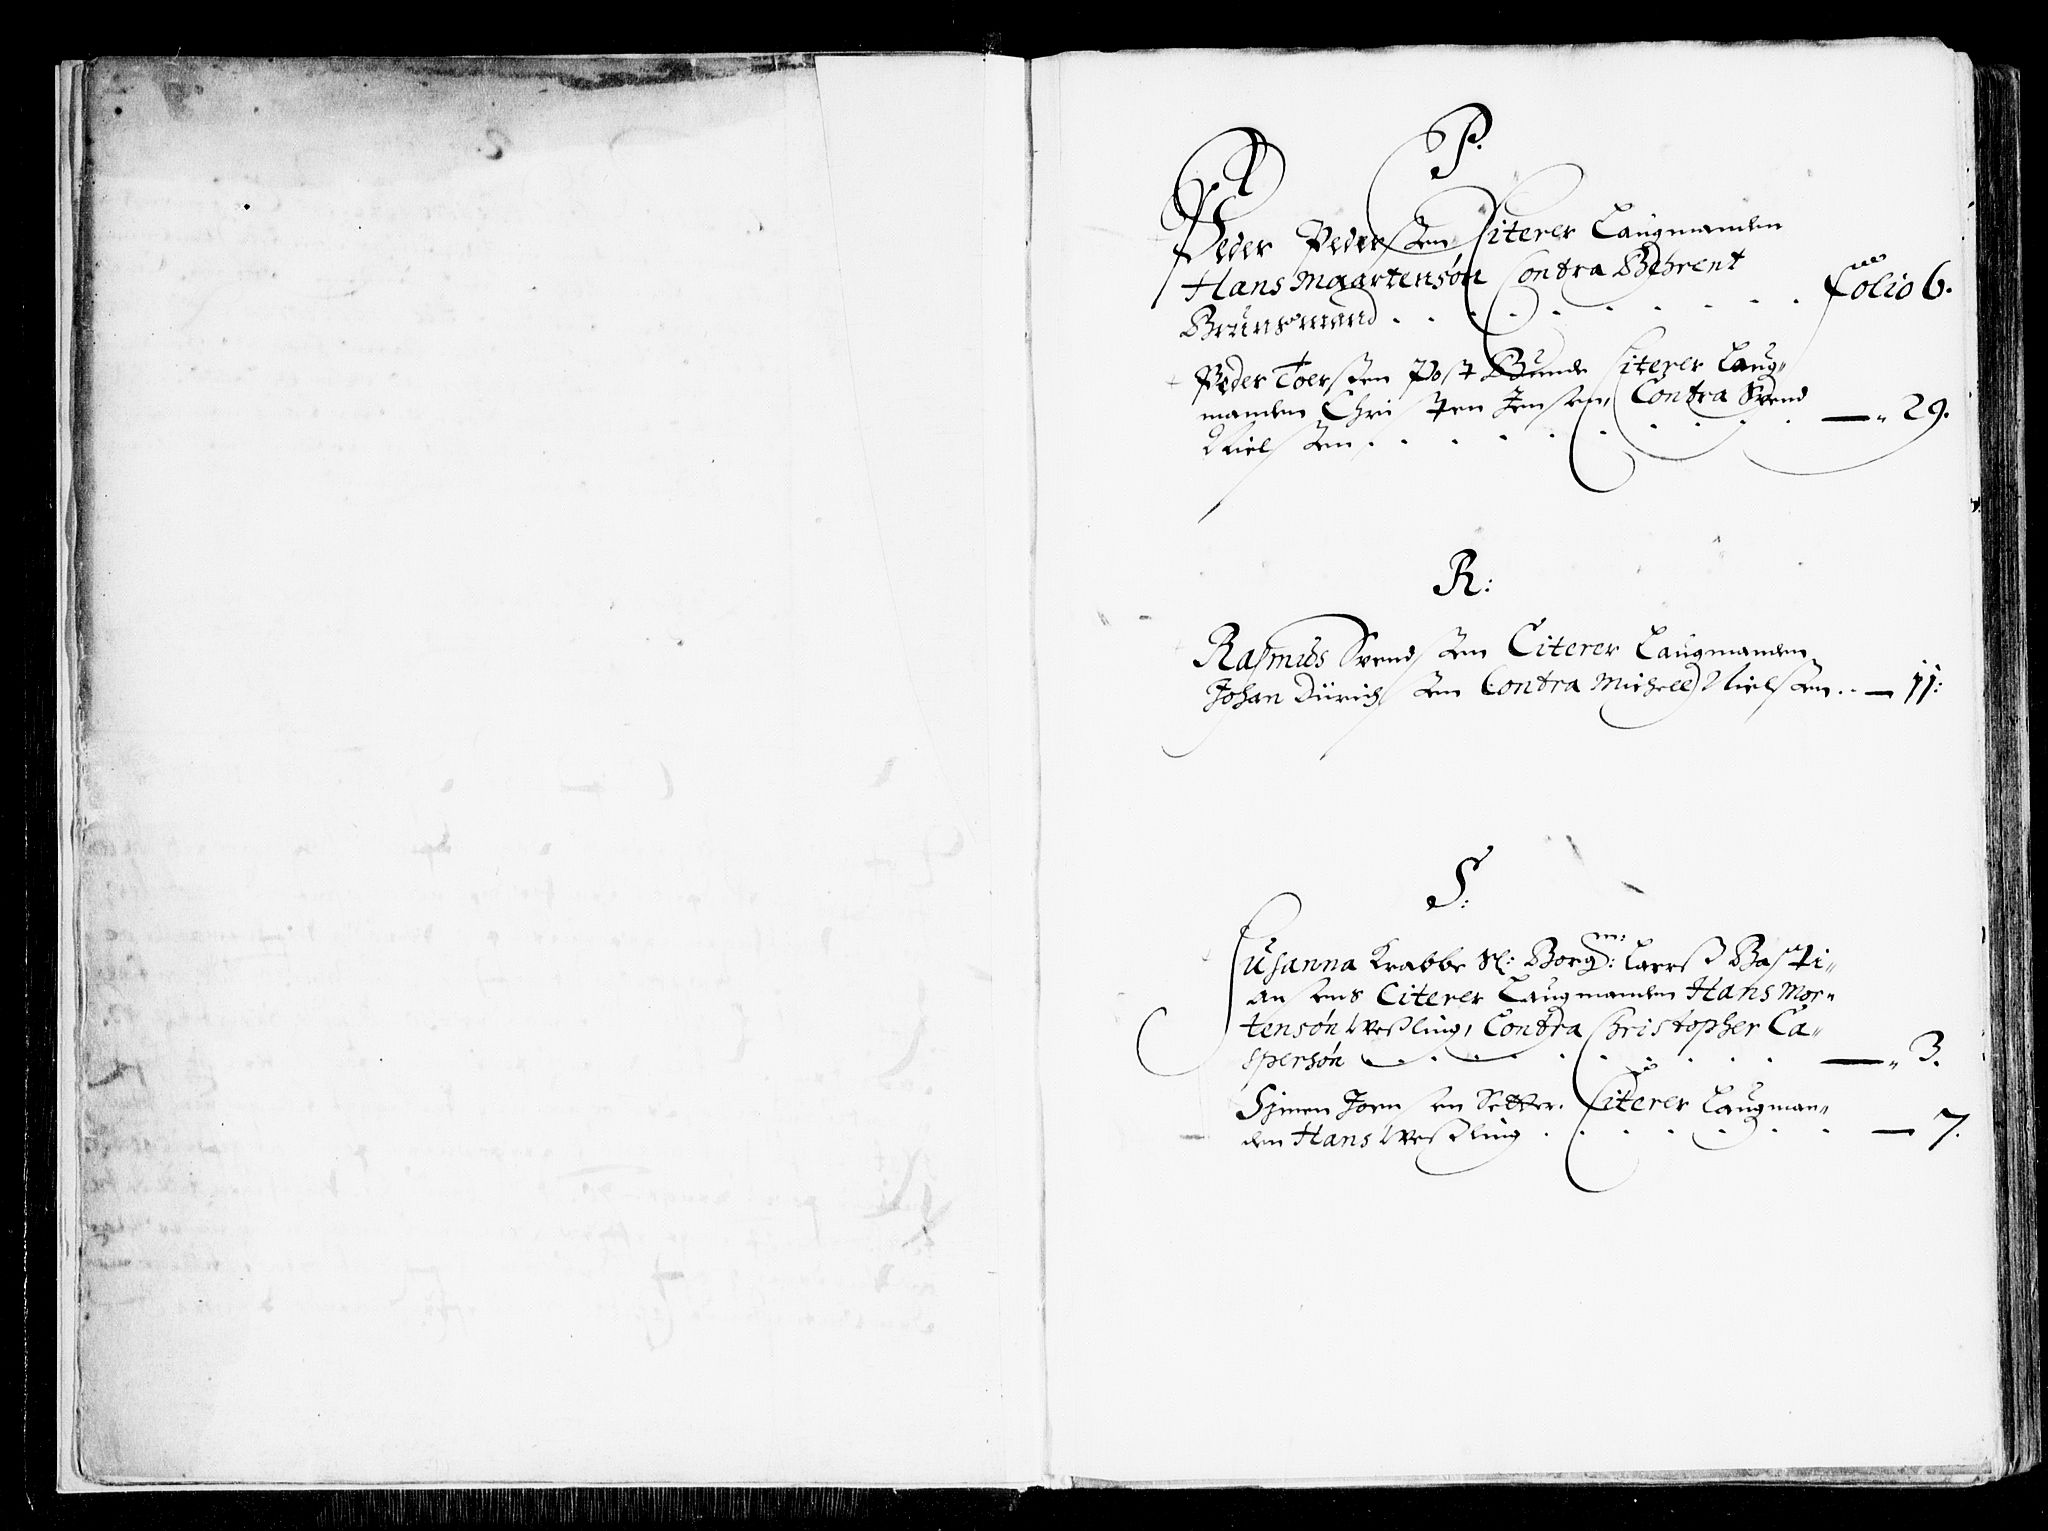 P.
Peder Pedersen Citerer Laugmanden
Hans Maartensøn Contra Behrent
Brunsmand . . . . . . . . . folio 6.
Peder Toersten Post Bunde Citerer Laug„
manden Christen Jensen, Contra Svend
Nielsen . . . . . . . . . — „ 29.
R:
Rasmus Svendsen Citerer Laugmanden
Johan Dürichsen Contra Michell Nielsen . . — 11:
S:
Susanna Krabbe Sl: Borgm: Larrß Basti„
ansens Citerer Laugmanden Hans Mor„
tensøn Weßling, Contra Christopher Ca„
spersøn . . . . . . . . . — „ 3.
Sjmen Joensen Setter. Citerer Laugman„
den Hans Weßling . . . . . . . — 7.